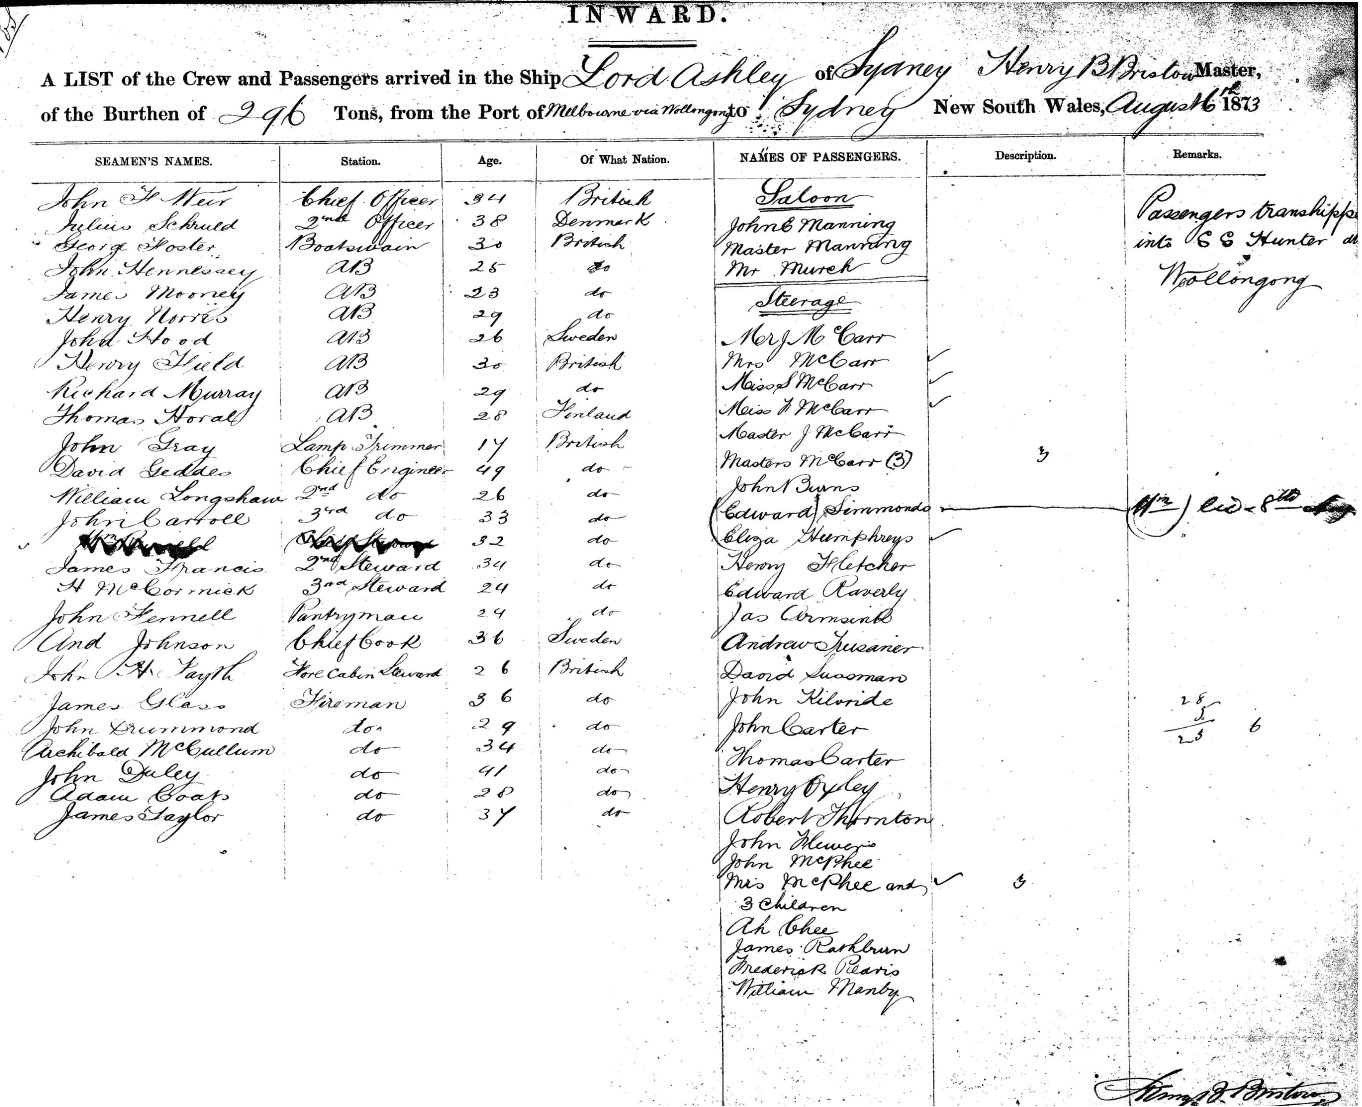 INWARD.
A LIST of the Crew and Passengers arrived in the Ship Lord Ashley of Sydney Henry B Bristow Master,
of the Burthen of 296 Tons, from the Port of Melbourne via Wollongong to Sydney New South Wales, August 6th 1873
SEAMEN'S NAMES. Station. Age. Of What Nation. NAMES OF PASSENGERS. Description. Remarks.
John F Weir Chief Officer 34 British Saloon
Julius Schruld 2nd Officer 38 Denmark John E Manning
Georg Foster Boatswain 30 British Master Manning
John Hennessey AB 25 do Mr Murch
James Mooney AB 23 do
Henry Norris AB 29 do Steerage
John Hood AB 26 Sweden Mr J McCarr
Henry Field AB 30 British Mrs McCarr
Richard Murray AB 29 do Miss S McCarr
Thomas Horal AB 28 Finland Miss F McCarr
John Gray Lamp Trimmer 17 British Master J McCarr
David Geddes Chief Engineer 49 do Masters McCarr (3) 3
William Longshaw 2nd do 26 do John Burns
John Carroll 3rd do 33 do (Edward) Simmonds
32 do Eliza Humphreys
James Francis 2nd Steward 34 do Henry Fletcher
H McCormick 3rd Steward 24 do Edward Raverly
John Fennell Pantryman 24 do Jas Armsink
And Johnson Chief Cook 36 Sweden Andrew Trusaner
John H Fayth Fore Cabin Steward 26 British David Sussman
James Glass Fireman 36 do John Kilvride
John Drummond do 29 do John Carter
Archibald McCullum do 34 do Thomas Carter
John Duley do 41 do Henry Oxley
Adam Coats do 28 do Robert Thornton
James Taylor do 37 do John Flewers
John McPhee
Mrs McPhee and 3
3 children
Ah Chee
James Rathburn
Frederick Pearis
William Manby
Passengers transhipped
into SS Hunter at
Woollongong
8th
28
5
23 6
Henry B. Bristow